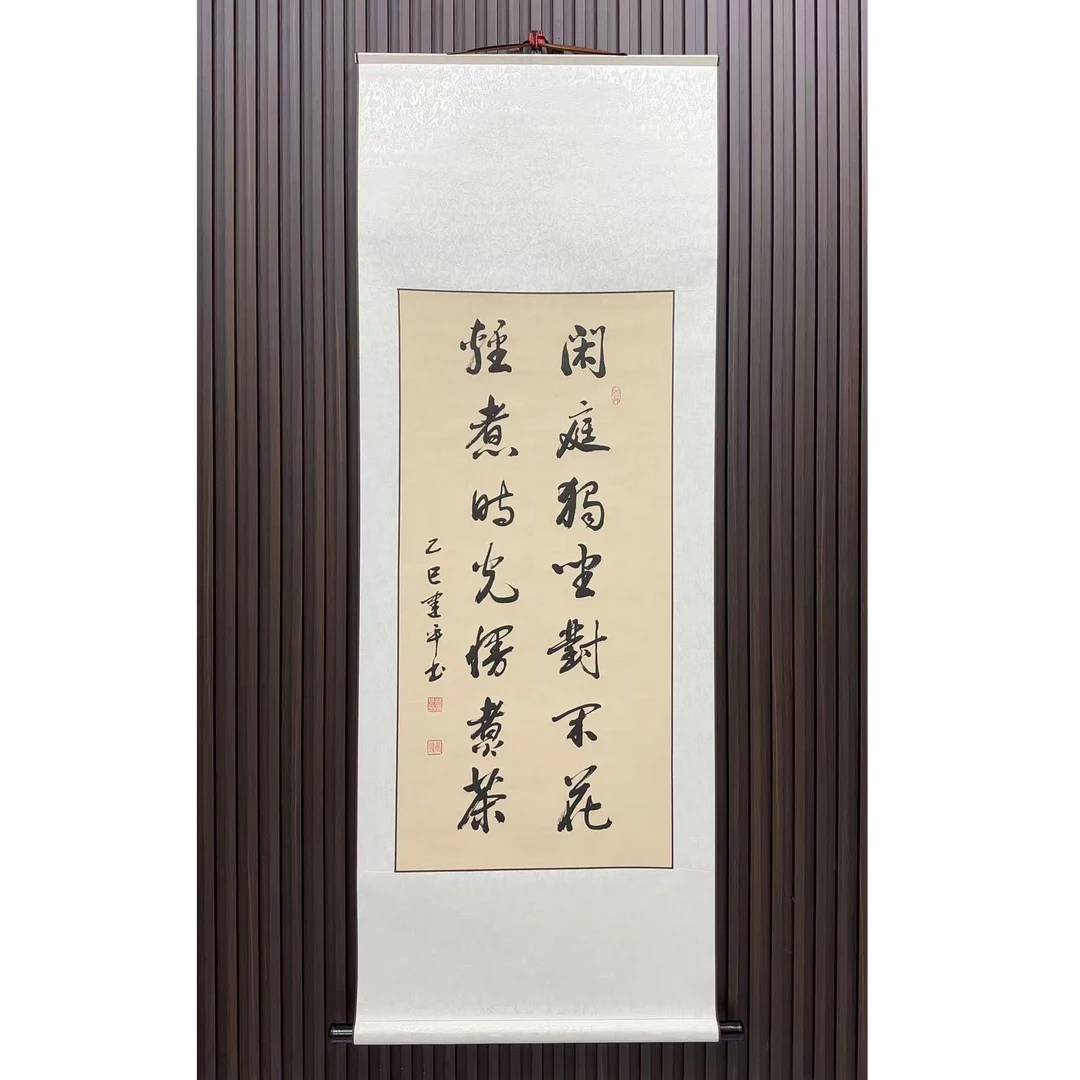 閑庭獨坐對閑花
輕煮时光慢煮茶
乙巳建平书